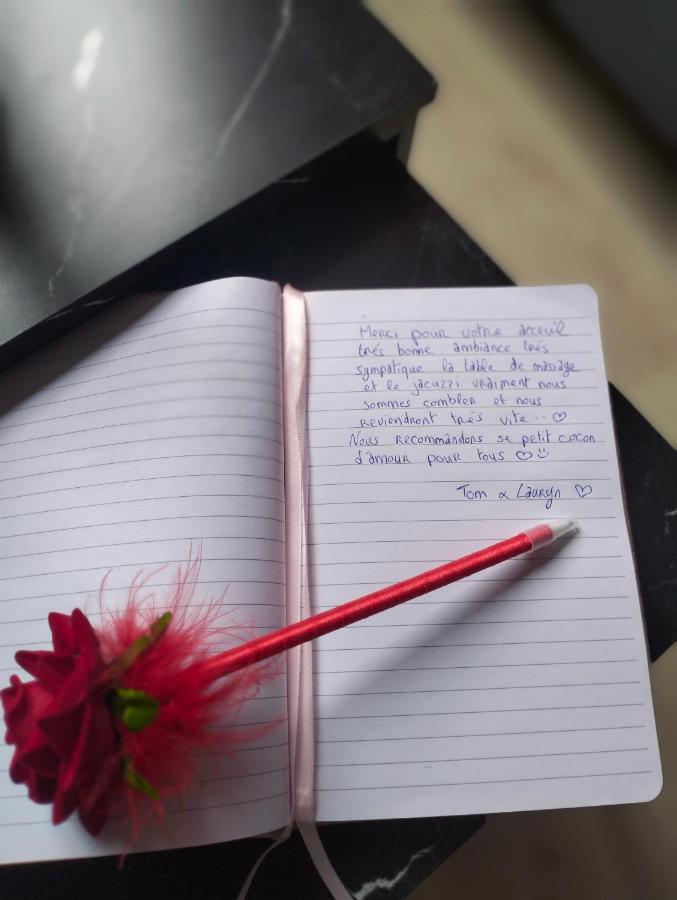 Merci pour votre acceuil
très bonne ambiance très
sympatique la table de massage
et le jacuzzi vraiment nous
sommes combler et nous
reviendront très vite .. ♡
Nous recommandons se petit cocon
d'amour pour tous ♡ ☺
Tom & Lauryn ♡